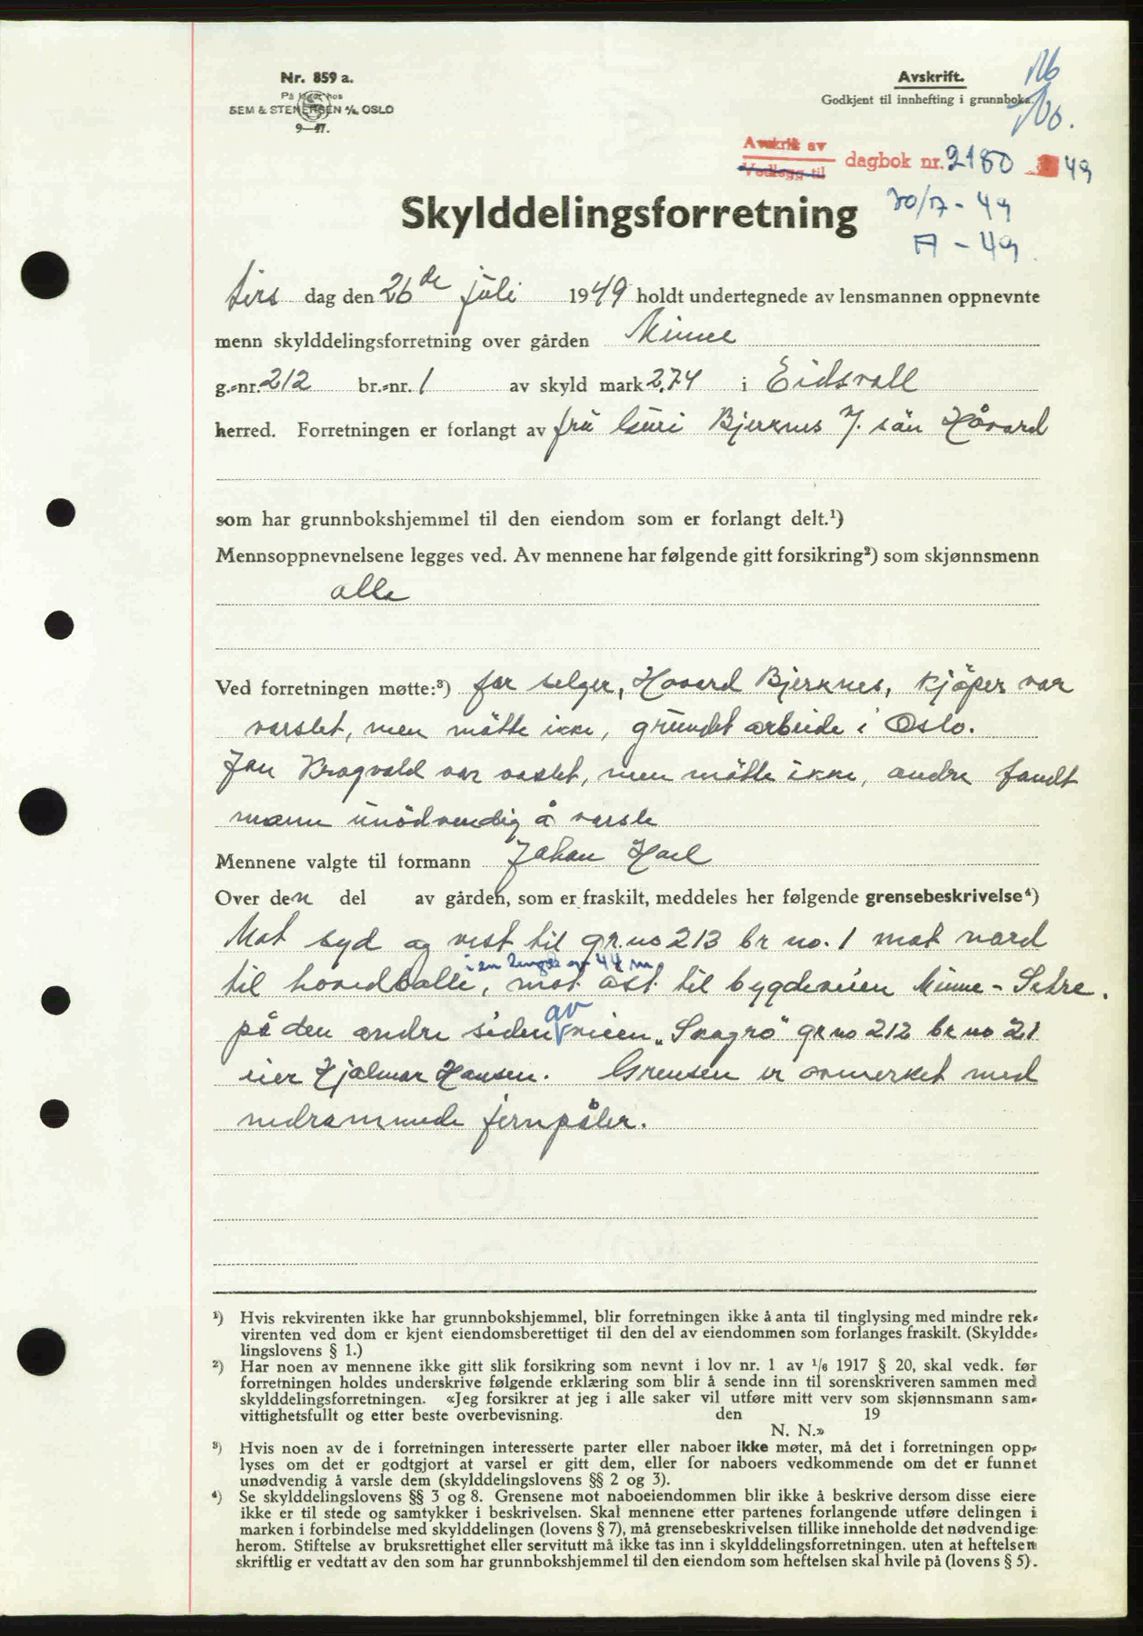 Nr. 859 a.
På lager hos
SEM & STENERSEN A/S, OSLO
9—47.
Avskrift.
Godkjent til innhefting i grunnboka.
Avskrift av
Vedlegg til
dagbok nr. 2180 49
30/7 - 49
A - 49
Skylddelingsforretning
Tirs dag den 26de juli 1949 holdt undertegnede av lensmannen oppnevnte
menn skylddelingsforretning over gården Minne
g.-nr. 212 br.-nr. 1 av skyld mark 2,74 i Eidsvoll
herred. Forretningen er forlangt av fru Guri Bjerknes v/ sön Håvard
som har grunnbokshjemmel til den eiendom som er forlangt delt.¹)
Mennsoppnevnelsene legges ved. Av mennene har følgende gitt forsikring²) som skjønnsmenn
alle
Ved forretningen møtte:³) for selger, Hovard Bjerknes, kjöper var
varslet, men mötte ikke, grundet arbeide i Oslo.
Jan Kragvold var vaslet, men mötte ikke, andre fandt
mann unödvendig å varsle
Mennene valgte til formann Johan Hoel
Over den del av gården, som er fraskilt, meddeles her følgende grensebeskrivelse⁴)
Mot syd og vest til gr.no 213 br no. 1 mot nord
i en lengde av 44 m
til hovedbölle, mot öst til bygdeveien Minne - Setre.
av
på den andre siden veien "Svagro" gr no 212 br no 21
eier Hjalmar Hansen. Grensen er avmerket med
nedrammede jernpåler.
¹) Hvis rekvirenten ikke har grunnbokshjemmel, blir forretningen ikke å anta til tinglysing med mindre rek-
virenten ved dom er kjent eiendomsberettiget til den del av eiendommen som forlanges fraskilt. (Skyldde-
lingslovens § 1.)
²) Har noen av mennene ikke gitt slik forsikring som nevnt i lov nr. 1 av ¹/₆ 1917 § 20, skal vedk. før
forretningen holdes underskrive følgende erklæring som blir å sende inn til sorenskriveren sammen med
skylddelingsforretningen. «Jeg forsikrer at jeg i alle saker vil utføre mitt verv som skjønnsmann sam-
vittighetsfullt og etter beste overbevisning. den 19
N. N.»
³) Hvis noen av de i forretningen interesserte parter eller naboer ikke møter, må det i forretningen opp-
lyses om det er godtgjort at varsel er gitt dem, eller for naboers vedkommende om det er funnet
unødvendig å varsle dem (skylddelingslovens §§ 2 og 3).
⁴) Se skylddelingslovens §§ 3 og 8. Grensene mot naboeiendommen blir ikke å beskrive dersom disse eiere
ikke er til stede og samtykker i beskrivelsen. Skal mennene etter partenes forlangende utføre delingen i
marken i forbindelse med skylddelingen (lovens § 7), må grensebeskrivelsen tillike inneholde det nødvendige
herom. Stiftelse av bruksrettighet eller servitutt må ikke tas inn i skylddelingsforretningen, uten at heftelsen
skriftlig er vedtatt av den som har grunnbokshjemmel til den eiendom som heftelsen skal hvile på (lovens § 5).